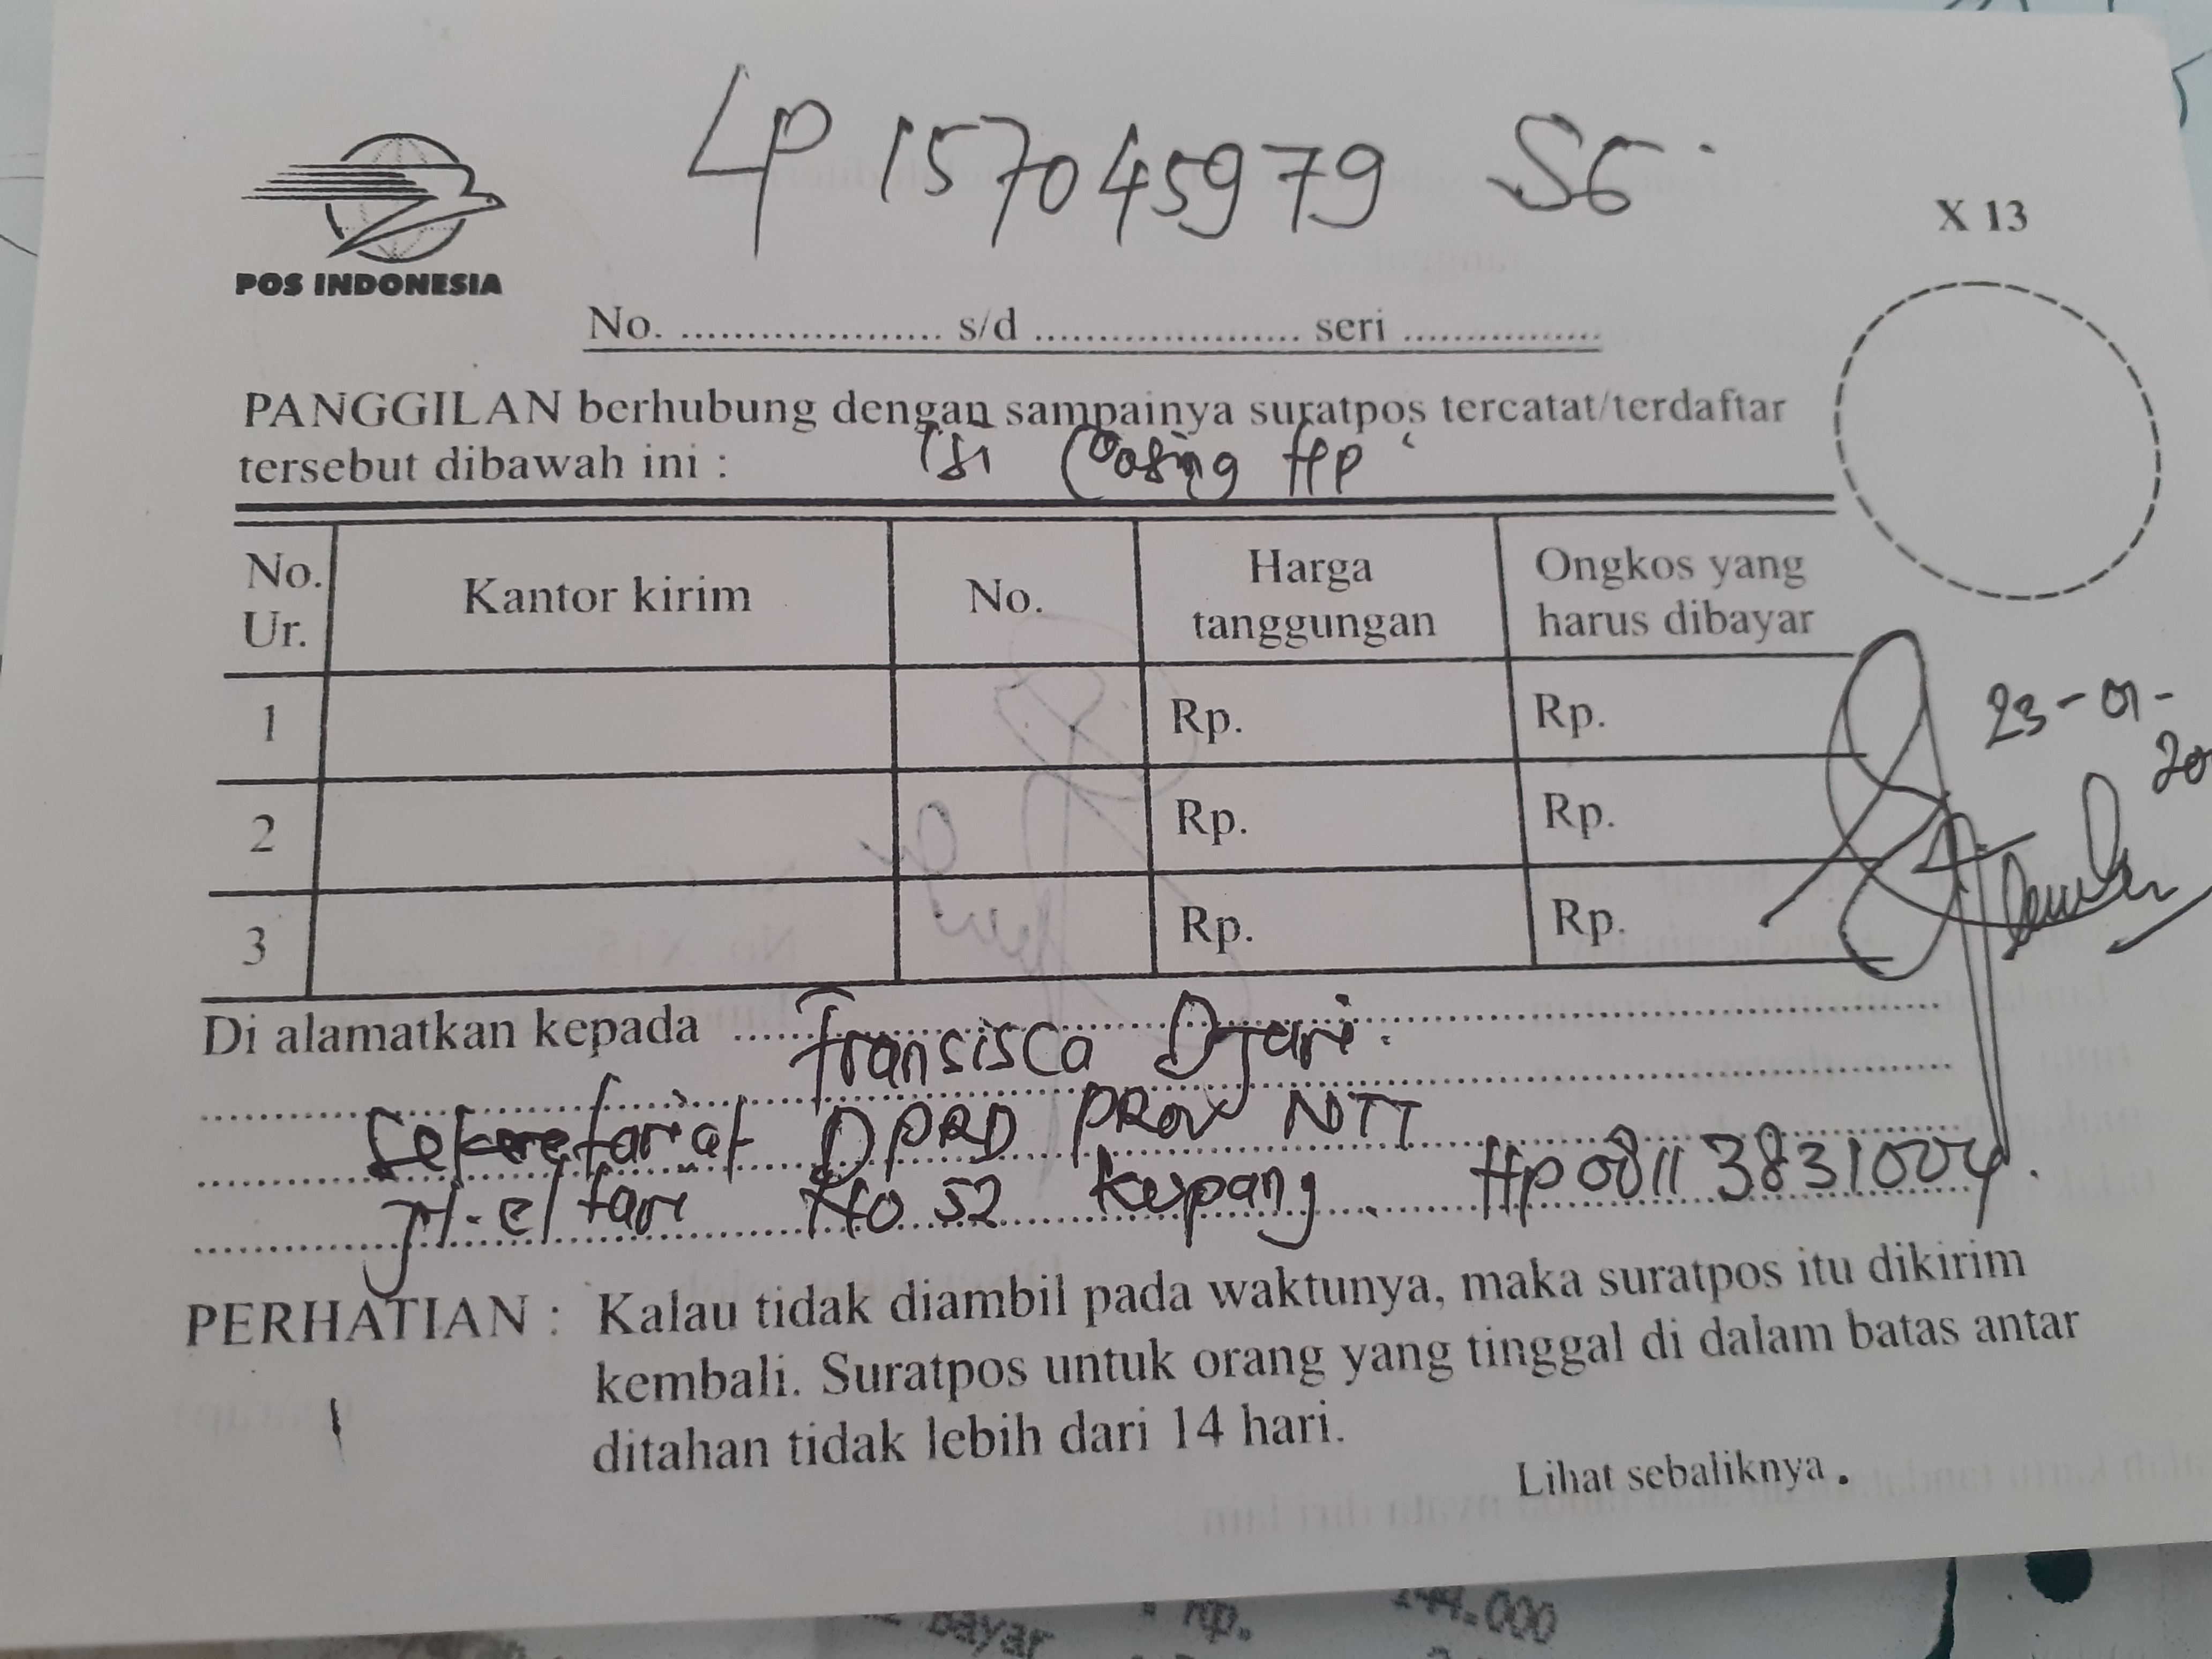 LP 157045979 SG.
X 13
POS INDONESIA
No. .................... s/d .................... seri ....................
PANGGILAN berhubung dengan sampainya suratpos tercatat/terdaftar
tersebut dibawah ini : Isi Casing HP
No. Ur. Kantor kirim No. Harga tanggungan Ongkos yang harus dibayar
1 Rp. Rp.
2 Rp. Rp.
3 Rp. Rp.
23-01-20
Di alamatkan kepada Fransisco
Sekretariat NTT
Jl. No 52 Kupang HP
PERHATIAN : Kalau tidak diambil pada waktunya, maka suratpos itu dikirim
kembali. Suratpos untuk orang yang tinggal di dalam batas antar
ditahan tidak lebih dari 14 hari.
Lihat sebaliknya.